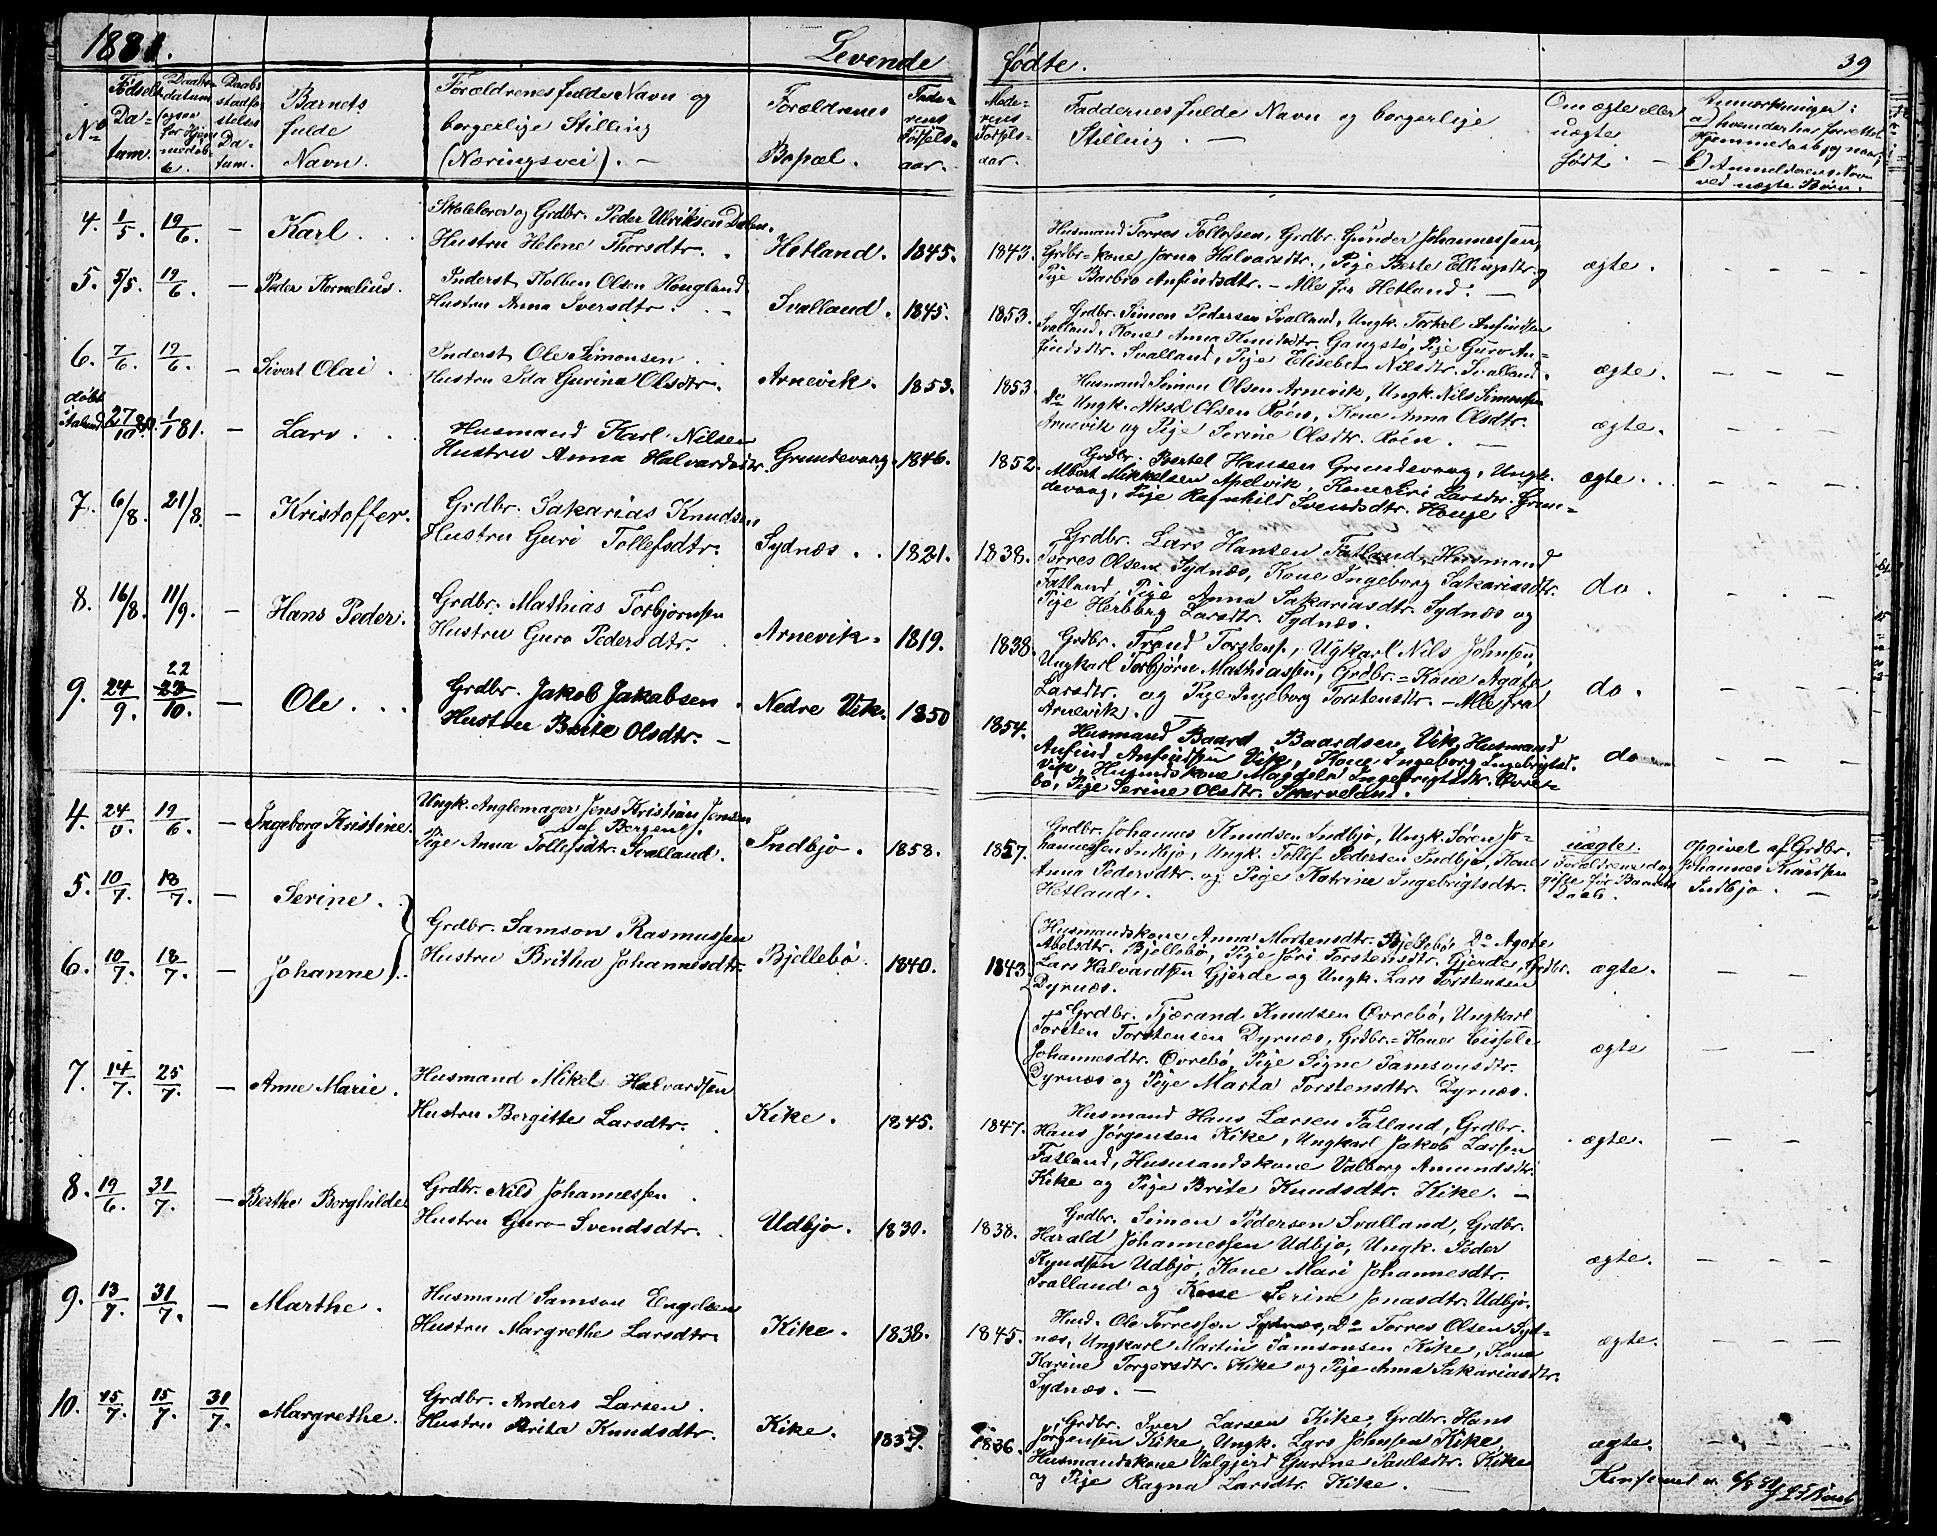 1881.
Levende
fødte.
39
No
Fødsels-
Da-
tum.
Daabs-
datum
Barnets
fulde
Navn.
Forældrenes fulde Navn og
borgerlige Stilling
(Næringsvei). —
Forældrenes
Bopæl.
Fade-
rens
Fødsels-
aar.
Mode-
rens
Fødsels-
aar.
Faddernes fulde Navn og borgerlige
Stilling. —
Om ægte eller
uægte
født. —
Anmærkninger:
a) hvem der har forrettet
Hjemmedaab og naar,
b) Anmelderens Navn
ved uægte Børn.
4. 1/5 19/6. — Karl . .
Skolelærer og Grdbr. Peder Ulriksen Dalen.
Hustru Helene Thorsdtr. .
Hetland. 1845. 1843.
Husmand Torres Tollefsen, Grdbr. Gunder Johannessen,
Grdbr=kone Jorna Halvarsdtr., Pige Berte Ellingsdtr. og
Pige Barbro Anfindsdtr. — Alle fra Hetland. —
ægte.
5. 5/5. 19/6 — Peder Kornelius.
Inderst Kolben Olsen Hougland
Hustru Anna Iversdtr. . —
Svalland. 1845. 1853.
Grdbr. Simon Pedersen Svalland, Ungk. Torkel Anfindsen
Svalland, Kone Anna Knudsdtr. Gangstø, Pige Guro An-
findsdtr. Svalland, Pige Elisebet Nilsdtr. Svalland.
ægte.
6. 7/6. 19/6. — Sivert Olai .
Inderst Ole Simonsen . .
Hustru Ida Gurina Olsdtr.
Arnevik. 1853. 1853.
Husmand Simon Olsen Arnevik, Ungk. Nils Simonsen
do Ungk. Aksel Olsen Røen, Kone Anna Olsdtr.
Arnevik og Pige Serine Olsdtr. Røen. —
ægte.
døbt
27/10 80. 1/1 81. — Lars . .
Husmand Karl Nilsen
Hustru Anna Halvardsdtr.
Grundevaag. 1846. 1852.
Grdbr. Bertel Hansen Grundevaag, Ungk.
Albert Mikkelsen Apelvik, Kone Siri Larsdtr. Grun-
devaag, Pige Rafnhild Svendsdtr. Houge.
ægte . .
7. 6/8. 21/8. — Kristoffer.
Grdbr. Sakarias Knudsen
Hustru Guri Tollefsdtr.
Sydnæs . . 1821. 1838.
Grdbr. Lars Hansen Fatland, Husmand
Torres Olsen Sydnæs, Kone Ingeborg Sakariasdtr.
Fatland, Pige Anna Sakariasdtr. Sydnæs og
Pige Herborg Larsdtr. Sydnæs.
do .
8. 16/8. 11/9. — Hans Peder.
Grdbr. Mathias Torbjørnsen
Hustru Guro Pedersdtr. .
Arnevik. 1819. 1838.
Grdbr. Trond Torstens., Ugkarl Nils Johnsen
Ungkarl Torbjørn Mathiassen, Grdbr.=Kone Agate
Larsdtr. og Pige Ingeborg Torstensdtr. — Alle fra
Arnevik.
do .
9. 24/9. 22 23/10. — Ole . . .
Grdbr. Jakob Jakobsen .
Hustru Brite Olsdtr. —
Nedre Vik. 1850 1854.
Husmand Baard Baardsen Vik, Husmand
Anfind Anfindsen Vik, Kone Ingeborg Ingebrigtsd.
Vik, Husmdskone Magdela Ingebrigtsdtr. Øvre-
bø, Pige Serine Olsdtr. Skarveland.
do
4. 24/ 19/6 — Ingeborg Kristine.
Ungk. Anglemager Jens Kristian Jensen
af Bergen og.
Pige Anna Tollefsdtr. Svalland.
Indbjo. 1858. 1857.
Grdbr. Johannes Knudsen Indbjo, Ungk. Søren Jo-
hannessen Indbjo, Ungk. Tollef Pedersen Indbjo, Kone
Anna Pedersdtr. og Pige Katrine Ingebrigtsdtr.
Hetland.
uægte.
Forældrene dog
gifte før Barnets
Daab.
Opgivet af Grdbr.
Johannes Knudsen
Indbjo. —
5. 10/7. 18/7. — Serine.
6. 10/7. 18/7. — Johanne.
Grdbr. Samson Rasmussen
Hustru Britha Johannesdtr.
Bjellebø. 1840. 1843.
Husmandskone Anna Mortensdtr. Bjellebø Do Agate
Abelsdtr. Bjellebø, Pige Siri Torstensdtr. Gjerde, Grdbr.
Lars Halvardsen Gjerde og Ungk. Lars Torstensen
Dyrnæs.
ægte.
Grdbr. Tjærand Knudsen Øvrebø, Ungkarl
Torsten Torstensen Dyrnæs, Grdbr.=Kone Sissele
Johannesdtr. Øvrebø, Pige Signe Samsonsdtr.
Dyrnæs og Pige Marta Torstensdtr. Dyrnæs.
ægte
7. 14/7. 25/7. — Anne Marie.
Husmand Mikel Halvardsen
Hustru Bergitte Larsdtr. .
Kike. 1845. 1847.
Husmand Hans Larsen Fatland, Grdbr.
Hans Jørgensen Kike, Ungkarl Jakob Larsen
Fatland, Husmandskone Valborg Amundsdtr.
Kike og Pige Brite Knudsdtr. Kike. —
ægte.
8. 19/6. 31/7. — Berthe Borghilde
Grdbr. Nils Johannessen .
Hustru Guro Svendsdtr. .
Udbjo. 1830. 1838.
Grdbr. Simon Pedersen Svalland, Grdbr.
Harald Johannessen Udbjo, Ungk. Peder
Knudsen Udbjo, Kone Mari Johannesdtr.
Svalland og Kone Serine Jonasdtr. Udbjo.
ægte.
9. 13/7. 31/7. — Marthe.
Husmand Samson Engelsen
Hustru Margrethe Larsdtr.
Kike. 1838. 1845.
Husd. Ole Torressen Sydnæs, Do Torres Olsen Syd-
næs, Ungkarl Martin Samsonsen Kike, Kone
Karine Torgersdtr. Kike og Pige Anna Sakariasdtr.
Sydnæs. —
ægte.
10. 15/7. 15/7. 31/7. Margrethe.
Grdbr. Anders Larsen .
Hustru Brita Knudsdtr.
Kike. 1837. 1836.
Grdbr. Iver Larsen Kike, Grdbr. Hans
Jørgensen Kike, Ungk. Lars Johnsen Kike,
Husmandskone Valgjerd Gurine Paulsdtr. Kike
og Pige Ragna Larsdtr. Kike. —
ægte.